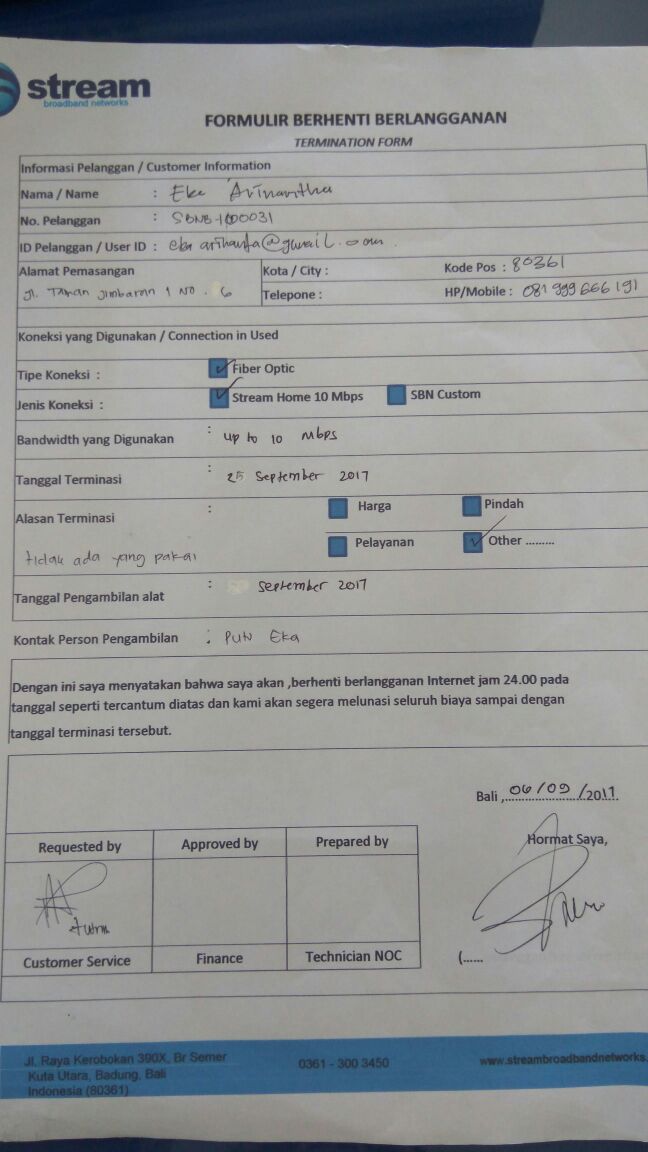 stream
broadband networks
FORMULIR BERHENTI BERLANGGANAN
TERMINATION FORM
Informasi Pelanggan / Customer Information
Nama / Name : Eka Arinantha
No. Pelanggan : SBNB-1000031
ID Pelanggan / User ID : eka arihanta@gmail.com
Alamat Pemasangan
Kota / City :
Kode Pos : 80361
Jl. Taman Jimbaran 1 No. 6
Telepone :
HP/Mobile : 081 999 666 191
Koneksi yang Digunakan / Connection in Used
Tipe Koneksi : Fiber Optic
Jenis Koneksi : Stream Home 10 Mbps SBN Custom
Bandwidth yang Digunakan : up to 10 Mbps
Tanggal Terminasi : 25 September 2017
Alasan Terminasi : Harga Pindah
Pelayanan Other .........
tidak ada yang pakai
Tanggal Pengambilan alat : September 2017
Kontak Person Pengambilan : Putu Eka
Dengan ini saya menyatakan bahwa saya akan ,berhenti berlangganan Internet jam 24.00 pada
tanggal seperti tercantum diatas dan kami akan segera melunasi seluruh biaya sampai dengan
tanggal terminasi tersebut.
Bali ,06/09/2017
Hormat Saya,
Requested by Approved by Prepared by
Customer Service Finance Technician NOC
(......
Jl. Raya Kerobokan 390X, Br Semer
Kuta Utara, Badung, Bali
Indonesia (80361)
0361 - 300 3450
www.streambroadbandnetworks.